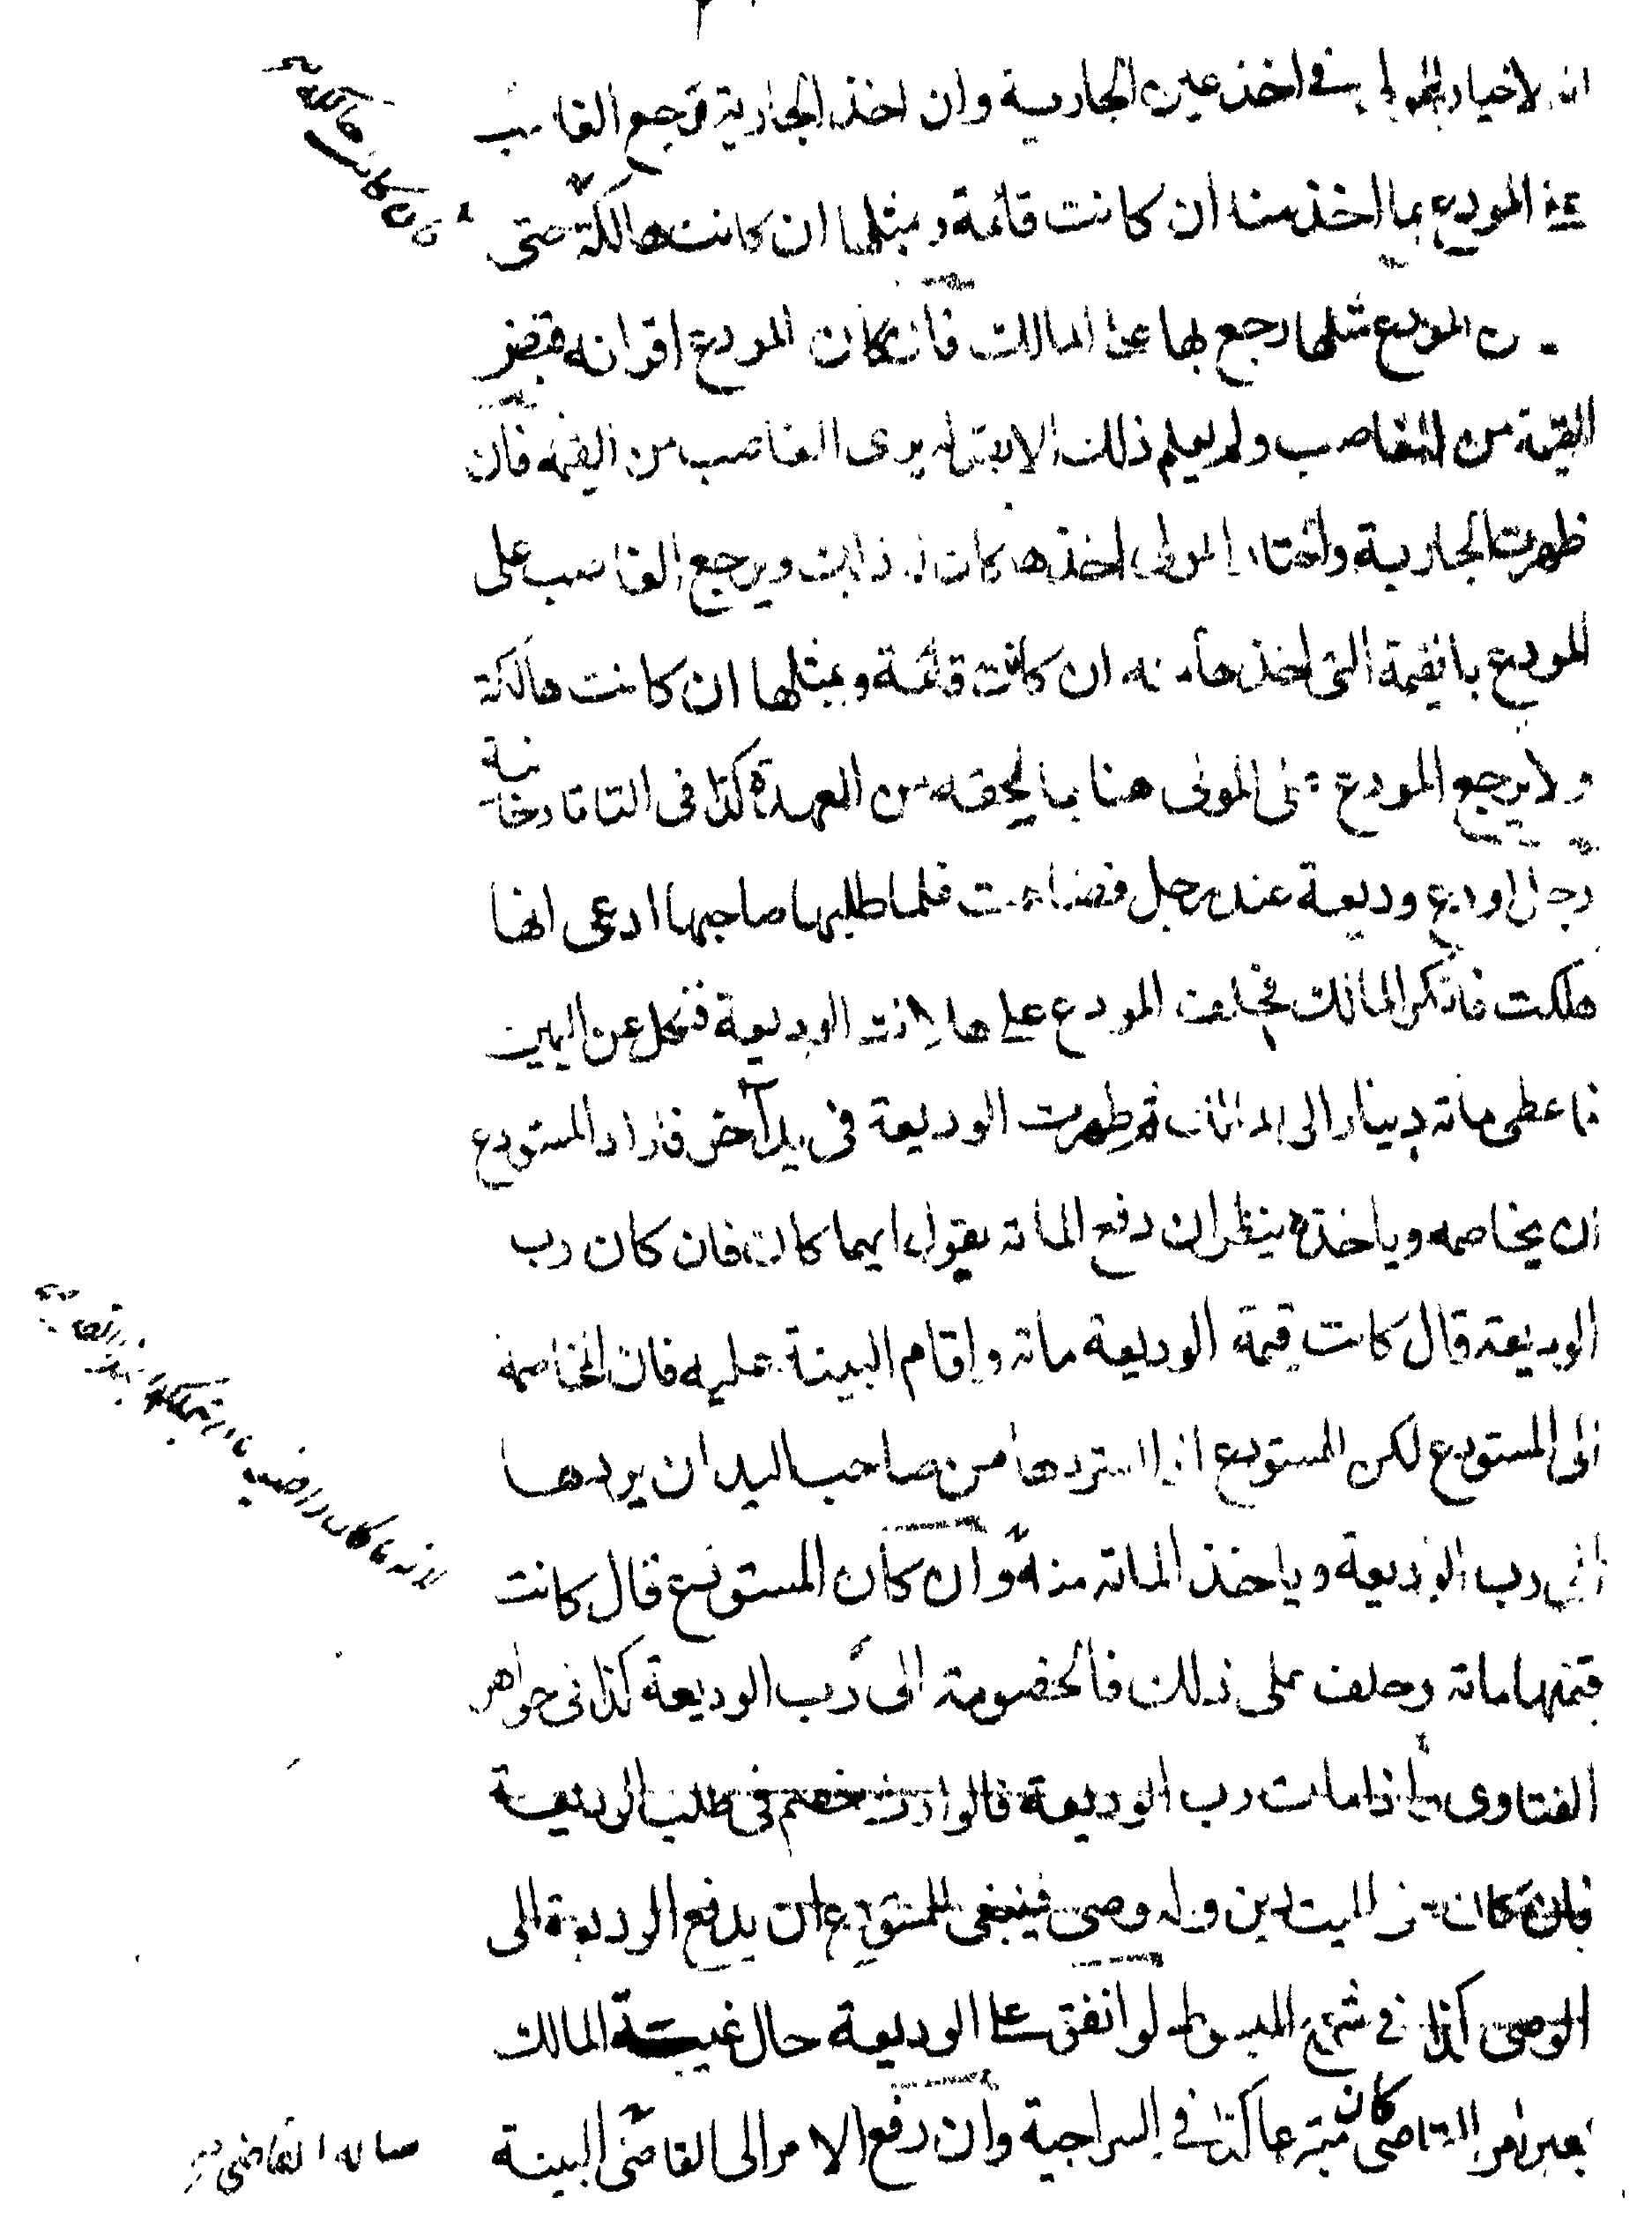 انه لاخيار للمولى في اخذ عين الجارية وان اخذ الجارية يرجع الغاصب
على المودع بما اخذ منه ان كانت قائمة وبمثلها ان كانت هالكة حتى
المودع مثلها رجع بها على المالك فان كان المودع اقر انه قبض
القيمة من الغاصب ولم يعلم ذلك الا بقوله يرى الغاصب من القيمة فان
ظهرت الجارية واختار المولى اخذها كان له ذلك ويرجع الغاصب على
المودع بالقيمة التى اخذها منه ان كانت قائمة وبمثلها ان كانت هالكة
ولا يرجع المودع على المولى هنا بما لحقه من العهدة كذا فى التاتارخانية
رجل اودع وديعة عند رجل فضاعت فلما طلبها صاحبها ادعى انها
هلكت فانكر المالك فحلف المودع على هلاك الوديعة فنكل عن اليمين
فاعطى مائة دينار الى المالك ثم ظهرت الوديعة فى يد آخر فاراد المستودع
ان يخاصمه وياخذه ينظر ان دفع المائة بقول ايهما كان فان كان رب
الوديعة قال كانت قيمة الوديعة مائة واقام البينة عليه فان المخاصمة
الى المستودع لكن المستودع اذا استردها من صاحب اليد ان يردها
الى رب الوديعة وياخذ المائة منه وان كان المستودع قال كانت
قيمتها مائة وحلف على ذلك فالخصومة الى رب الوديعة كذا فى جواهر
الفتاوى اذا مات رب الوديعة فالوارث خصم فى طلب الوديعة
فان كان على الميت دين وله وصى فينبغى للمستودع ان يدفع الوديعة الى
الوصى كذا في شرح المبسوط لو انفق على الوديعة حال غيبة المالك
بغير امر القاضى كان متبرعا كذا في السراجية وان رفع الامر الى القاضى البينة
فان كانت هالكة
لانه كان راضيا
ساله القاضى